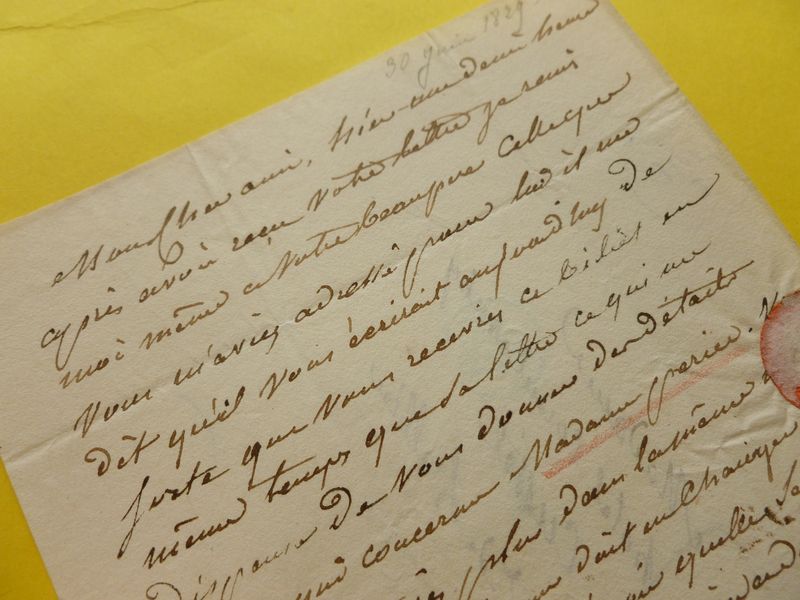 30 juin 1829
Mon cher ami, hier une demi heure
après avoir reçu votre lettre je remis
moi même a votre beaupere celle que
vous m'aviez adressé pour lui il me
dit qu'il vous écrirait aujourd'huy de
sorte que vous recevrez ce billet en
même temps que sa lettre ce qui me
dispense de vous donner des détails
qui concerne Madame perier.
plus dans la même
doit en
quelle